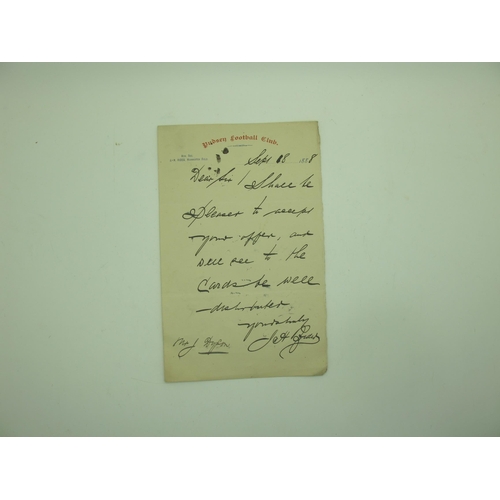 Pudsey Football Club.
Sept 18
Dear Sir / I shall be
pleased to accept
your offer, and
will see to the
Cards be well
distributed
yours truly
Mr J Dyson